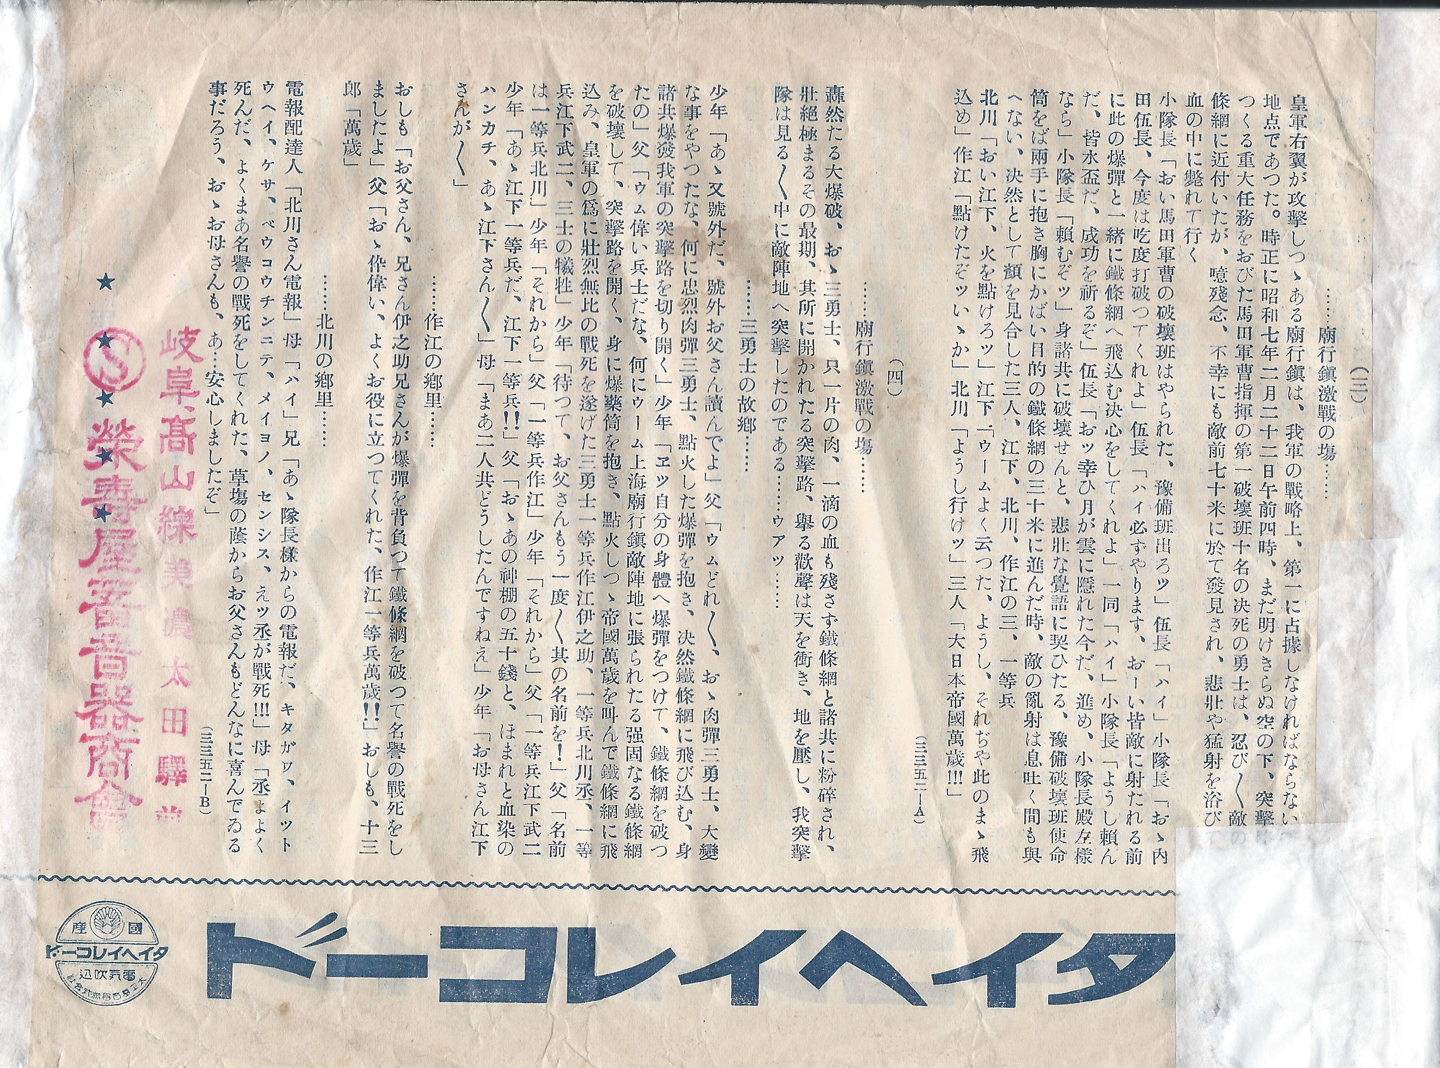 （三）
……廟行鎭激戰の塲……
皇軍右翼が攻擊しつゝある廟行鎭は、我軍の戰略上、第一に占據しなければならない
地点であつた。時正に昭和七年二月二十二日午前四時、まだ明けきらぬ空の下、突擊
つくる重大任務をおびた馬田軍曹指揮の第一破壞班十名の決死の勇士は、忍び〳〵敵の
條網に近付いたが、噫殘念、不幸にも敵前七十米に於て發見され、悲壯や猛射を浴び
血の中に斃れて行く
小隊長「おい馬田軍曹の破壞班はやられた、豫備班出ろッ」伍長「ハイ」小隊長「おゝ內
田伍長、今度は吃度打破つてくれよ」伍長「ハイ必ずやります、おーい皆敵に射たれる前
に此の爆彈と一緖に鐵條網へ飛込む決心をしてくれよ」一同「ハイ」小隊長「ようし賴ん
だ、皆水盃だ、成功を祈るぞ」伍長「おッ幸ひ月が雲に隱れた今だ、進め、小隊長殿左樣
なら」小隊長「賴むぞッ」身諸共に破壞せんと、悲壯な覺語に契ひたる、豫備破壞班使命
筒をば兩手に抱き胸にかばい目的の鐵條網の三十米に進んだ時、敵の亂射は息吐く間も與
へない、決然として顏を見合した三人、江下、北川、作江の三、一等兵
北川「おい江下、火を點けろッ」江下「ウームよく云つた、ようし、それぢや此のまゝ飛
込め」作江「點けたぞッいゝか」北川「ようし行けッ」三人「大日本帝國萬歲!!!」
（三三五二―A）
（四）
……廟行鎭激戰の塲……
轟然たる大爆破、おゝ三勇士、只一片の肉、一滴の血も殘さず鐵條網と諸共に粉碎され、
壯絕極まるその最期、其所に開かれたる突擊路、擧る歡聲は天を衝き、地を壓し、我突擊
隊は見る〳〵中に敵陣地へ突擊したのである……ウアッ……
……三勇士の故鄕……
少年「あゝ又號外だ、號外お父さん讀んでよ」父「ウムどれ〳〵、おゝ肉彈三勇士、大變
な事をやつたな、何に忠烈肉彈三勇士、點火した爆彈を抱き、決然鐵條網に飛び込む、身
諸共爆發我軍の突擊路を切り開く」少年「ヱッ自分の身體へ爆彈をつけて、鐵條網を破つ
たの」父「ウム偉い兵士だな、何にウーム上海廟行鎭敵陣地に張られたる强固なる鐵條網
を破壞して、突擊路を開く、身に爆藥筒を抱き、點火しつゝ帝國萬歲を叫んで鐵條網に飛
込み、皇軍の爲に壯烈無比の戰死を遂げた三勇士一等兵作江伊之助、一等兵北川丞、一等
兵江下武二、三士の犧牲」少年「待つて、お父さんもう一度〳〵其の名前を！」父「名前
は一等兵北川」少年「それから」父「一等兵作江」少年「それから」父「一等兵江下武二
少年「あゝ江下一等兵だ、江下一等兵!!」父「おゝあの神棚の五十錢と、ほまれと血染の
ハンカチ、あゝ江下さん〳〵」母「まあ二人共どうしたんですねえ」少年「お母さん江下
さんが〳〵」
……作江の鄕里……
おしも「お父さん、兄さん伊之助兄さんが爆彈を背負つて鐵條網を破つて名譽の戰死をし
ましたよ」父「おゝ伜偉い、よくお役に立つてくれた、作江一等兵萬歲!!」おしも、十三
郎「萬歲」
……北川の鄕里……
電報配達人「北川さん電報」母「ハイ」兄「あゝ隊長樣からの電報だ、キタガワ、イツト
ウヘイ、ケサ、ベウコウチンニテ、メイヨノ、センシス、えッ丞が戰死!!!」母「丞ょよく
死んだ、よくまあ名譽の戰死をしてくれた、草塲の蔭からお父さんもどんなに喜んでゐる
事だろう、おゝお母さんも、あ…安心しましたぞ」
（三三五二―B）
岐阜、髙山線美濃太田驛前
Ⓢ 榮壽屋蓄音器商會
タイヘイレコード
國產
タイヘイレコード
電氣吹込